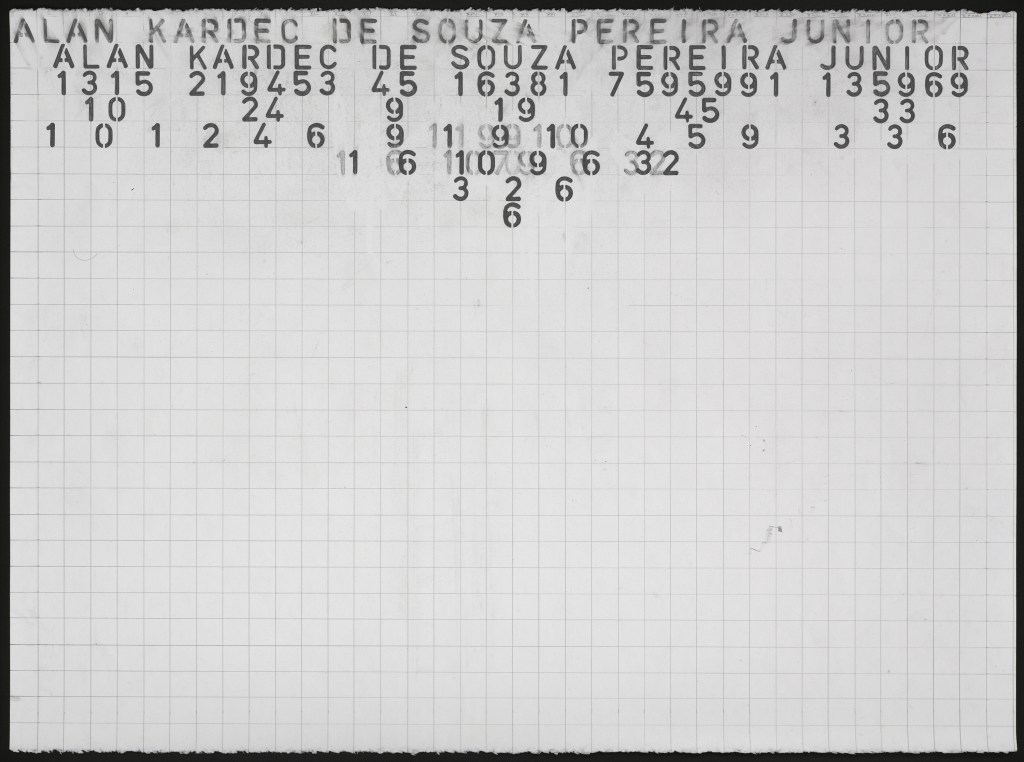 ALAN KARDEC DE SOUZA PEREIRA JUNIOR
ALAN KARDEC DE SOUZA PEREIRA JUNIOR
1315 219453 45 16381 7595991 135969
10 24 9 19 45 33
1 0 1 2 4 6 9 1 9 10 4 5 9 3 3 6
1 6 10 9 6 32
3 2 6
6